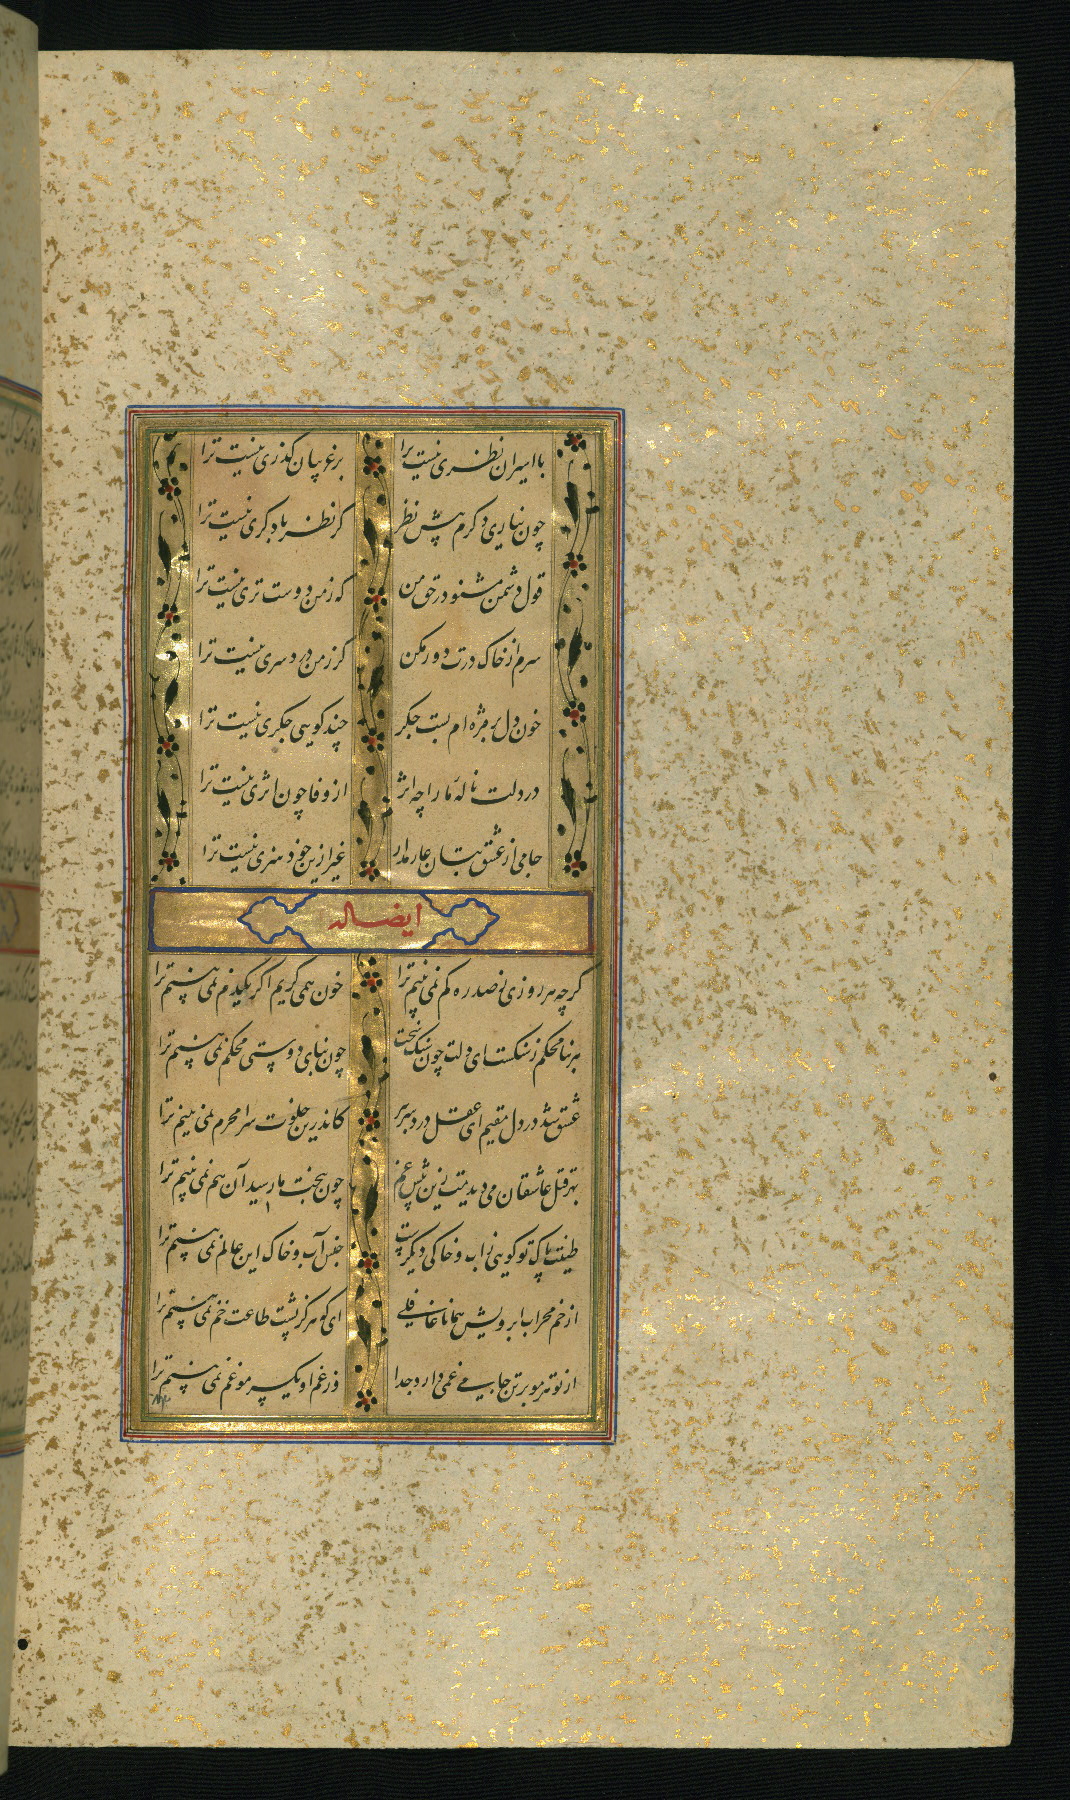 با اسیران نظری نیست ترا برغریبان گذری نیست ترا
چون نیاری دکرم پیش نظر کر نظر با دکری نیست ترا
قول دشمن مشنو در حق من که زمن دوست تری نیست ترا
سرم از خاک درت دور مکن کر زمن دردسری نیست ترا
خون دل بر مژه ام بست جکر چند کویی جکری نیست ترا
در دلت ناله ما را چه اثر از وفا چون اثری نیست ترا
جامی از عشق بتان عار مدار غیر ازین خود هنری نیست ترا
ایضا له
کرچه هر روزی ز صد ره کم نمی بینم ترا خون همی کریم اکر یکدم نمی بینم ترا
هر بنا محکم ز سنکست ای دلت چون سنک سخت چون بنای دوستی محکم نمی بینم ترا
عشق شد در دل مقیم ای عقل درد سر ببر کاندرین خلوت سرا محرم نمی بینم ترا
بهر قتل عاشقان می دیدمت زین پیش غم چون بخت ما رسید آن هم نمی بینم ترا
طینت پاک تو کویی ز اب و خاکی دیکرست جنس آب و خاک این عالم نمی بینم ترا
از خم محراب ابرویش همانا غافلی ای که هرکز پشت طاعت خم نمی بینم ترا
از تو هر مو بر تن جامی غمی دارد جدا وز غم او یکسر مو غم نمی بینم ترا